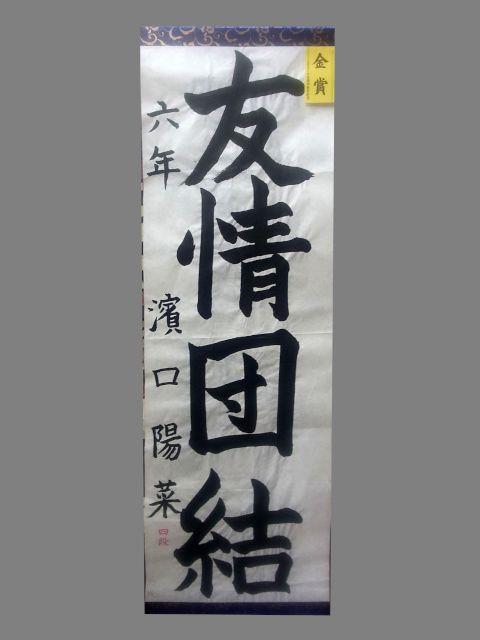 金賞
友情団結
六年 濱口陽菜
四段